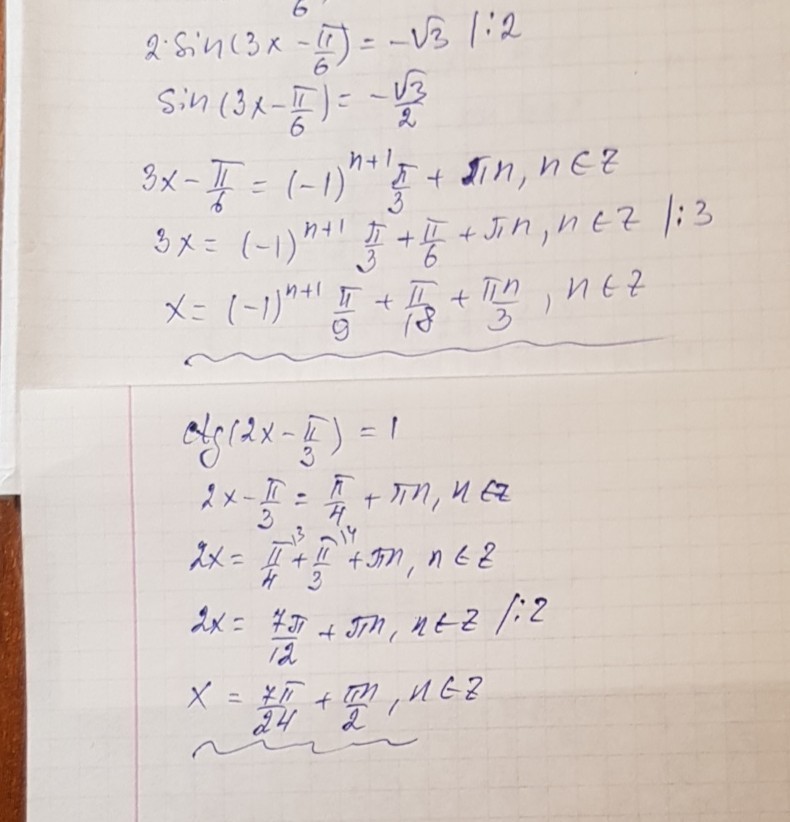 6
2·sin(3x - π/6) = -√3 |:2
sin(3x - π/6) = -√3/2
3x - π/6 = (-1)^(n+1) π/3 + πn, n∈Z
3x = (-1)^(n+1) π/3 + π/6 + πn, n∈Z |:3
x = (-1)^(n+1) π/9 + π/18 + πn/3, n∈Z
ctg(2x - π/3) = 1
2x - π/3 = π/4 + πn, n∈Z
2x = π/4^(\3) + π/3^(\4) + πn, n∈Z
2x = 7π/12 + πn, n∈Z |:2
x = 7π/24 + πn/2, n∈Z